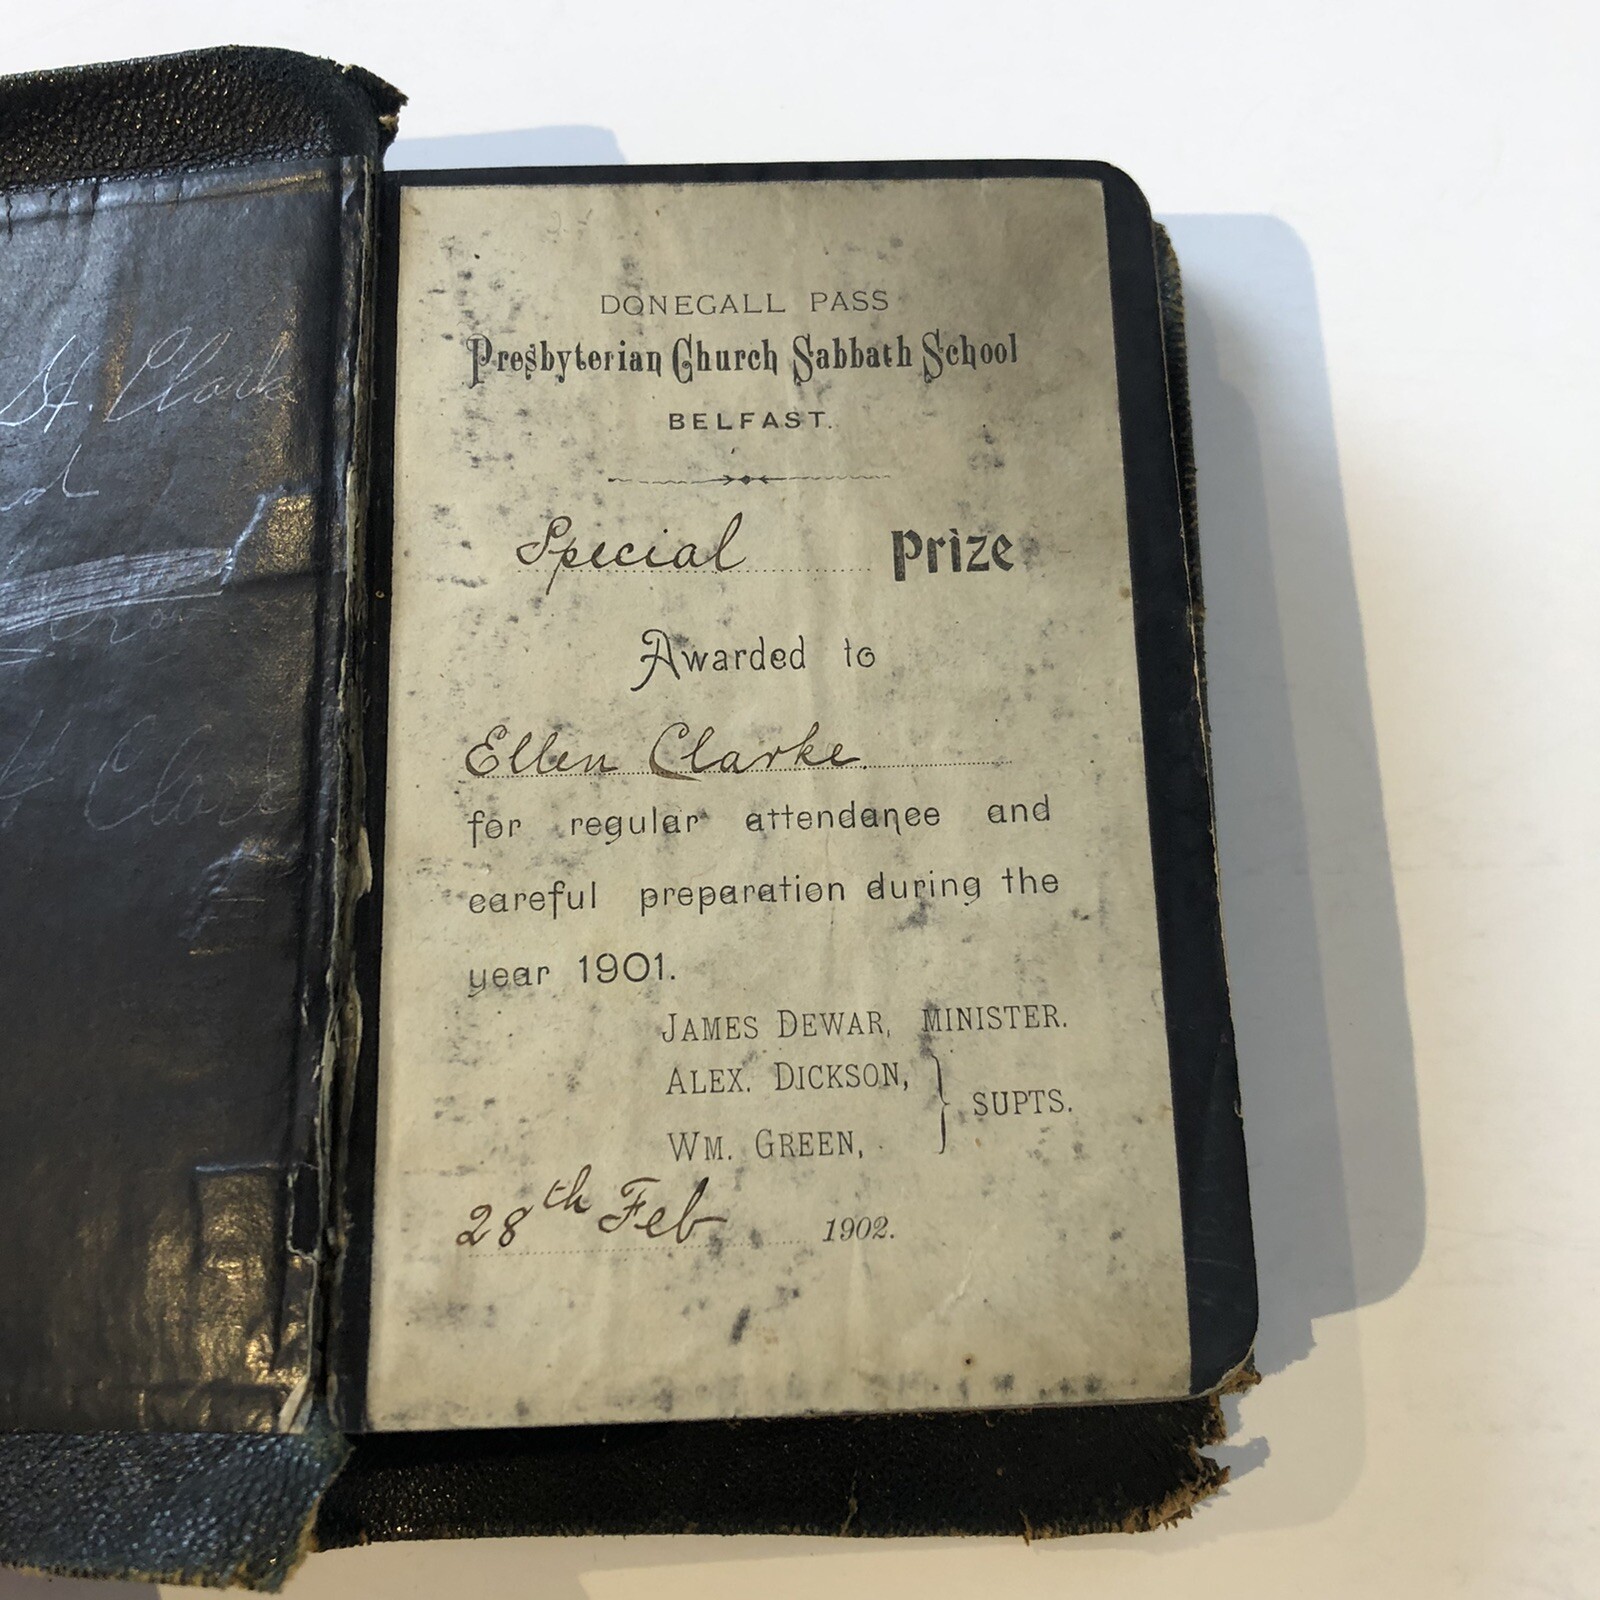 H. Clark
DONEGALL PASS
Presbyterian Church Sabbath School
BELFAST.
Special Prize
Awarded to
Ellen Clarke.
for regular attendance and
careful preparation during the
year 1901.
JAMES DEWAR, MINISTER.
ALEX. DICKSON,
SUPTS.
WM. GREEN,
28th Feb 1902.